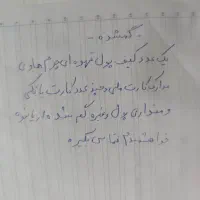 - گمشده -
یک عدد کیف پول قهوه ای چرم حاوی
مدارک کارت ملی و چند عدد کارت بانکی
و مقداری پول و غیره گم شده از یابنده
خواهشمندم تماس بگیره